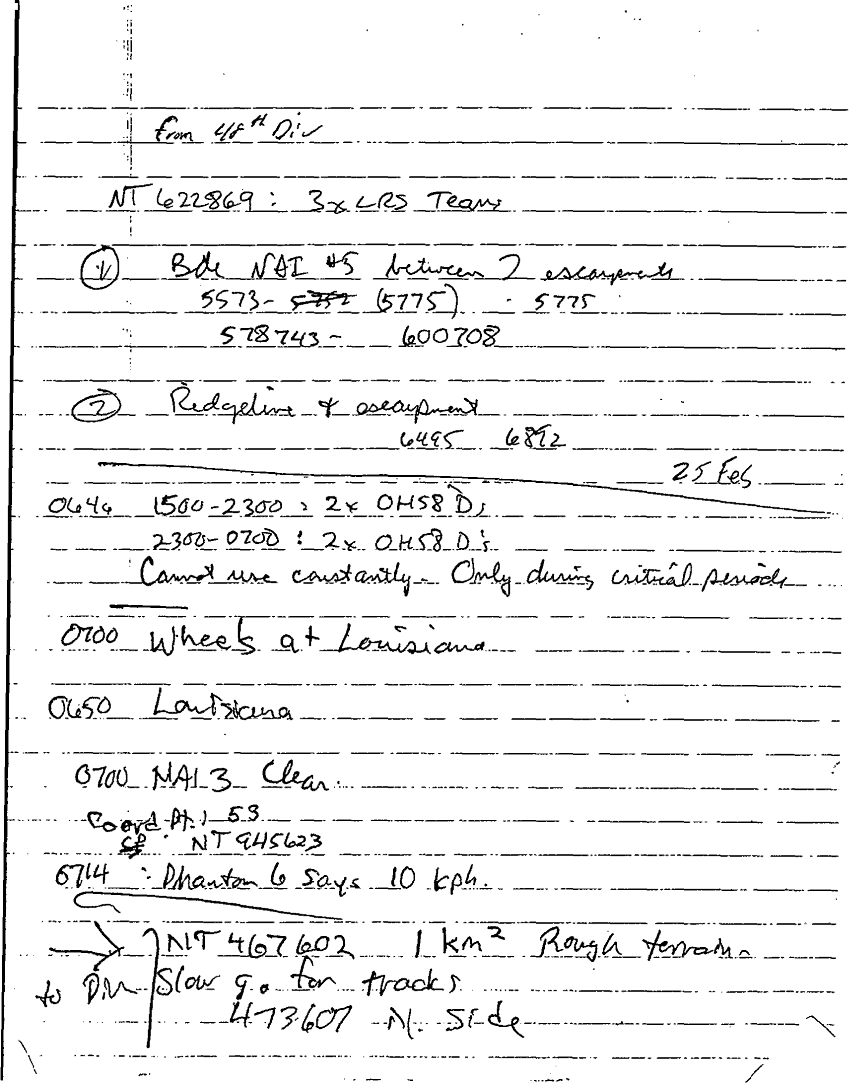 from 48th Div
NT 622869 : 3x LRS Teams
① Bde NAI #5 between 2 escarpments
5573 - (5775) - 5775
578743 - 600708
② Ridgeline & escarpment
6495 6892
25 Feb
0646 1500-2300 : 2x OH58 D's
2300-0700 : 2x OH58 D's
Cannot use constantly - Only during critical periods
0700 Wheels at Louisiana
0650 Louisiana
0700 NAI 3 Clear.
Coord Pt. 53
NT 945623
0714 : Phantom 6 Says 10 kph.
NT 467602 1 km² Rough terrain -
to Div Slow go for tracks
473607 N. Side